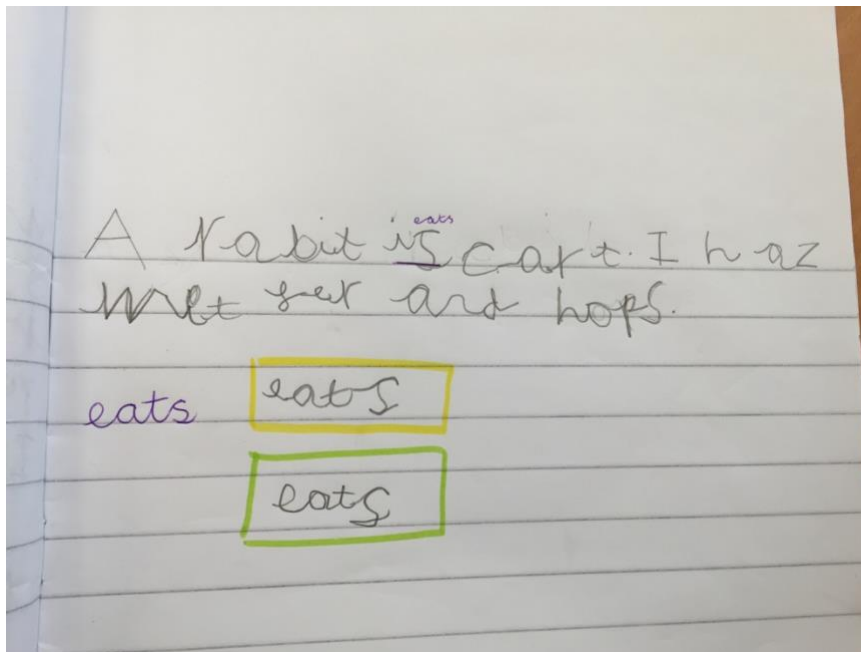 eats
A rabit is cart. I haz
wit fer and hops.
eats
eats
eats